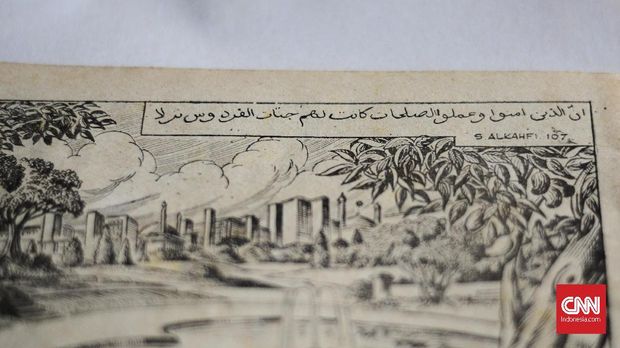 انّ الذين امنوا وعملو الصلحات كانت لهم جنات الفردوس نزلا
S ALKAHFI 107
CNN
Indonesia.com